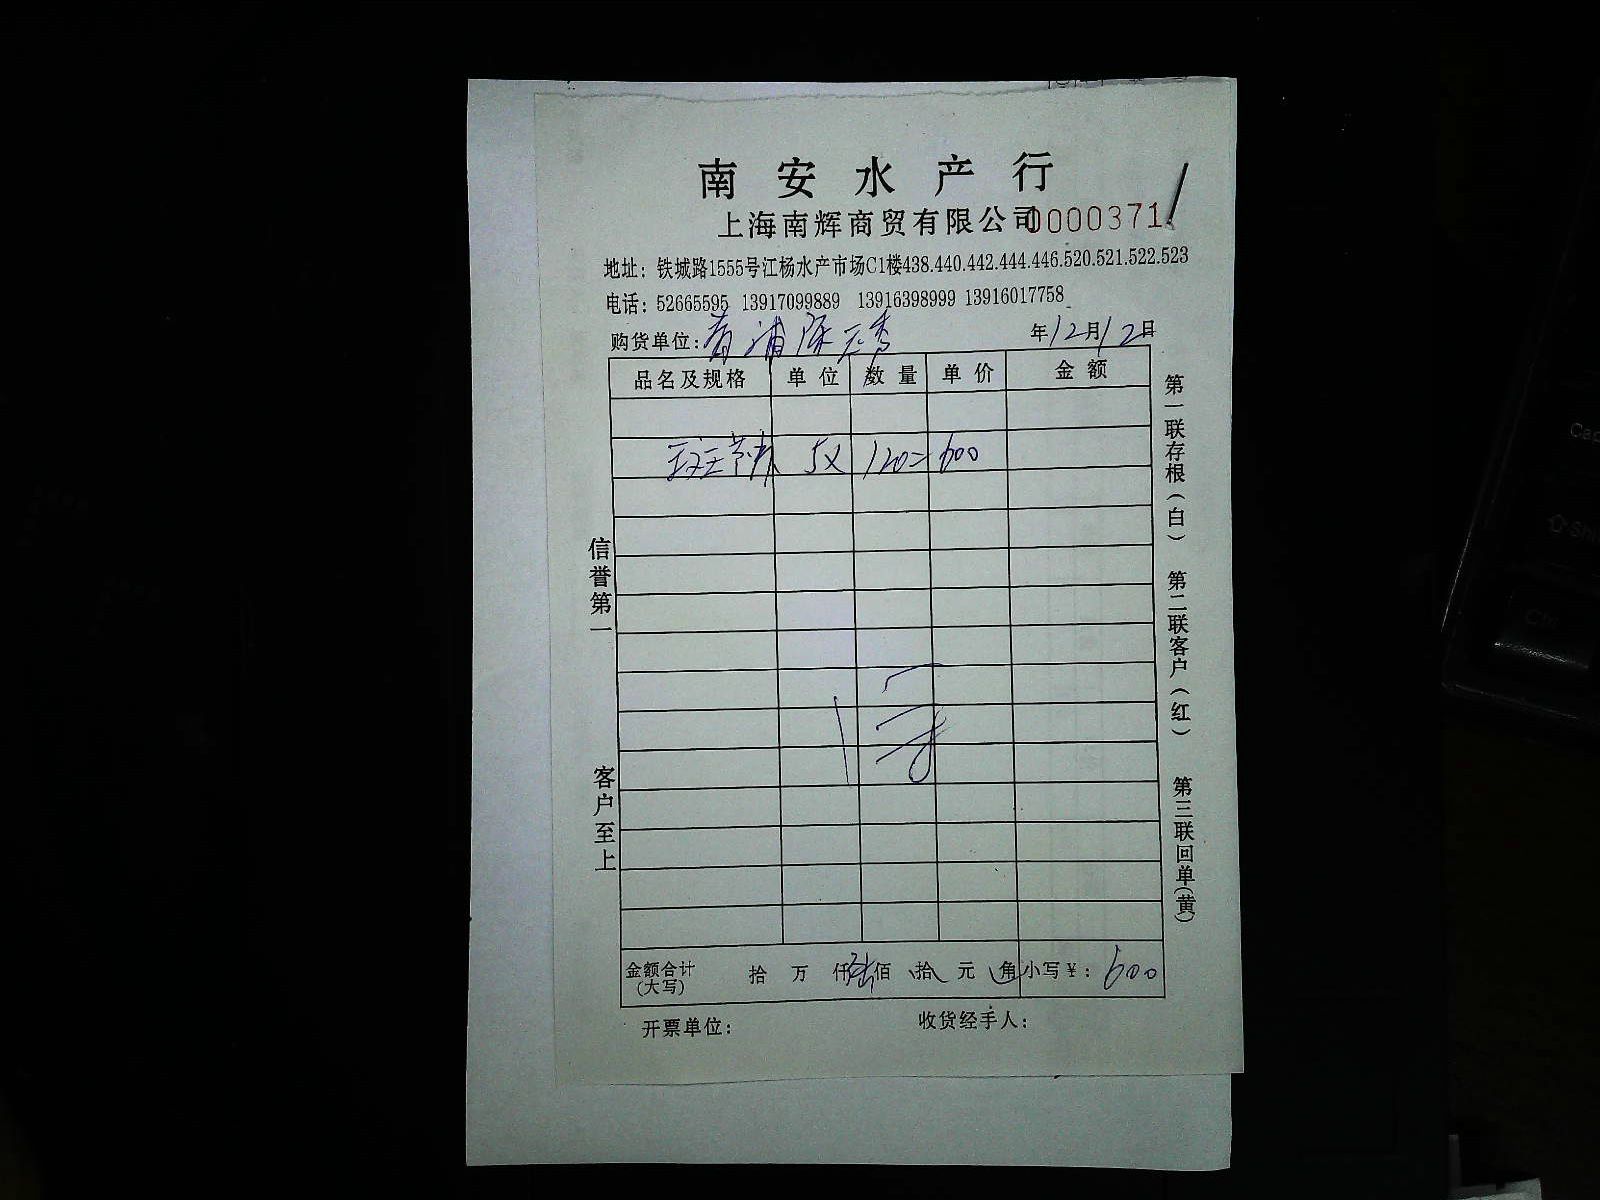 南安水产行
上海南辉商贸有限公司 0000371
地址：铁城路1555号江杨水产市场C1楼438.440.442.444.446.520.521.522.523
电话：52665595 13917099889 13916398999 13916017758
购货单位：黄浦 年12月12日
品名及规格 单位 数量 单价 金额
斑节 5X 120=600
金额合计(大写) 拾 万 仟陆佰 拾 元 角 小写￥：600
开票单位： 收货经手人：
信誉第一
客户至上
第一联存根(白)
第二联客户(红)
第三联回单(黄)